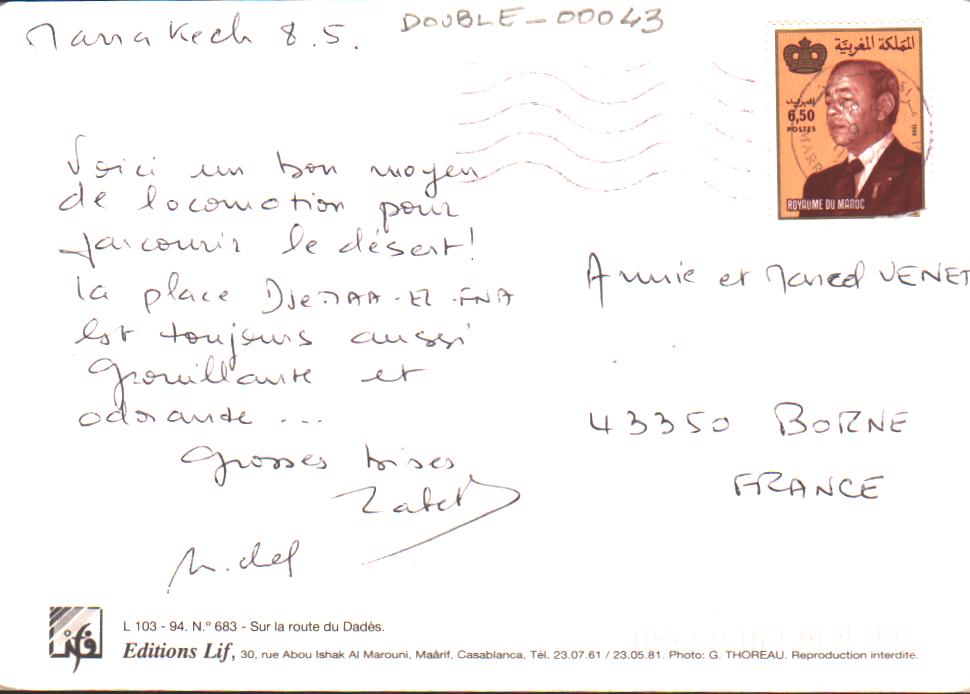 DOUBLE-00043
Marrakech 8.5.
المملكة المغربية
البريد
6,50
POSTES
ROYAUME DU MAROC
Voici un bon moyen
de locomotion pour
parcourir le désert!
la place DJEMAA-EL-FNA
est toujours aussi
grouillante et
odorante ...
Grosses bises
Annie et Marcel VENET
43350 BORNE
FRANCE
L 103 - 94. N.º 683 - Sur la route du Dadès.
Lif
Editions Lif, 30, rue Abou Ishak Al Marouni, Maârif, Casablanca, Tél. 23.07.61 / 23.05.81. Photo: G. THOREAU. Reproduction interdite.